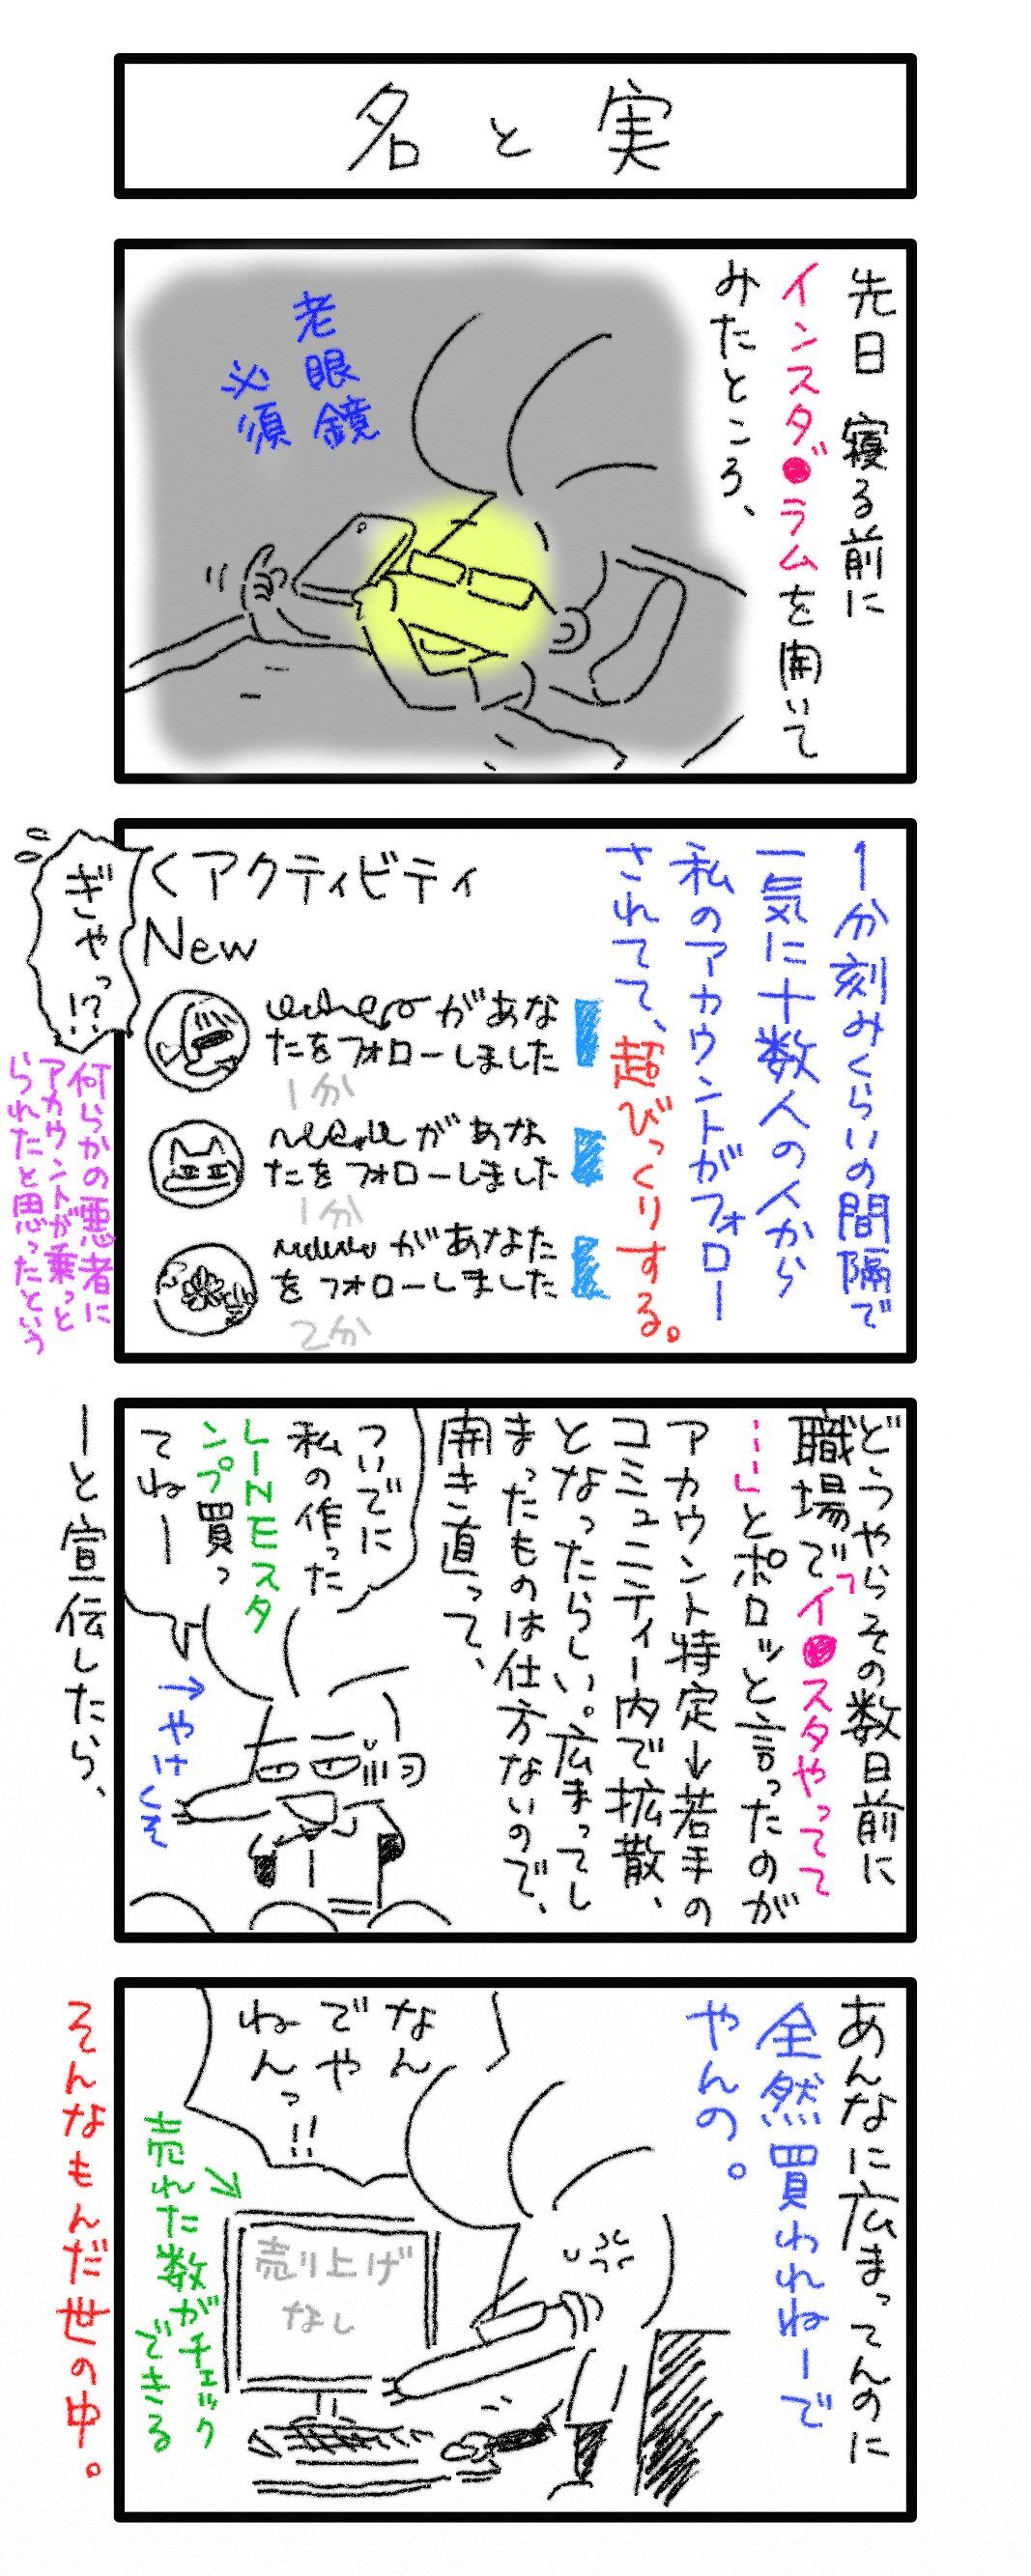 名と実
先日 寝る前に
インスタ゛●ラムを開いて
みたところ、
老眼鏡
必須
1分刻みくらいの間隔で
一気に十数人の人から
私のアカウントがフォロー
されてて、超びっくりする。
<アクティビティ
New
があな
たをフォローしました
1分
があな
たをフォローしました
1分
があなた
をフォローしました
2分
ぎゃっ!?
何らかの悪者に
アカウントが乗っと
られたと思ったという
どうやらその数日前に
職場で「イ●スタやってて
……」とポロッと言ったのが
アカウント特定→若手の
コミュニティー内で拡散、
となったらしい。広まってし
まったものは仕方ないので、
開き直って、
ついでに
私の作った
LINEスタ
ンプ買っ
てねー
→やけくそ
ーと宣伝したら、
あんなに広まってんのに
全然買われねーで
やんの。
なん
でや
ねんっ!!
売り上げ
なし
売れた数がチェック
できる
そんなもんだ世の中。